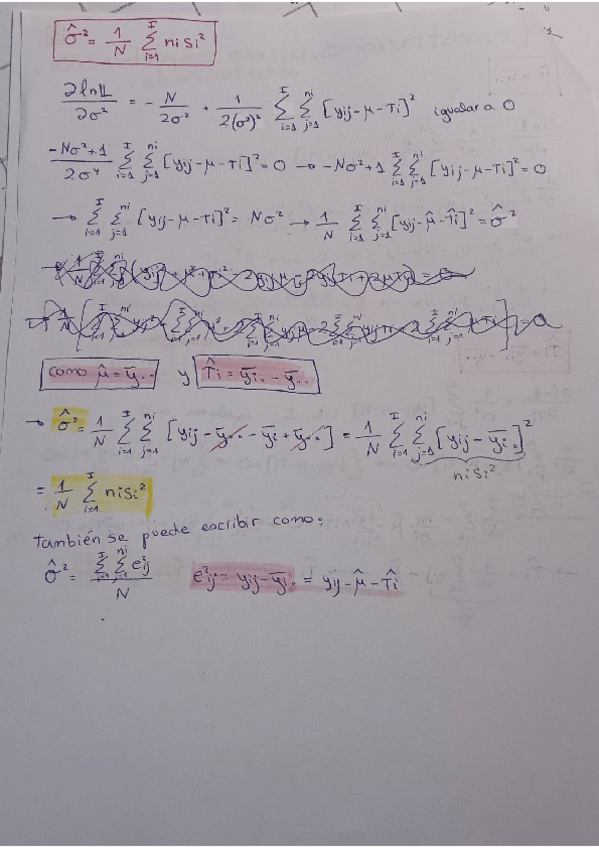 σ̂² = 1/N Σ_{i=1}^{I} nisi²
∂lnL/∂σ² = - N/2σ² + 1/2(σ²)² Σ_{i=1}^{I} Σ_{j=1}^{ni} [yij-μ-τi]² igualar a 0
-Nσ²+1/2σ⁴ Σ_{i=1}^{I} Σ_{j=1}^{ni} [yij-μ-τi]²=0 → -Nσ²+1 Σ_{i=1}^{I} Σ_{j=1}^{ni} [yij-μ-τi]²=0
→ Σ_{i=1}^{I} Σ_{j=1}^{ni} [yij-μ-τi]² = Nσ² → 1/N Σ_{i=1}^{I} Σ_{j=1}^{ni} [yij-μ̂-τ̂i]² = σ̂²
como μ̂ = ȳ.. y τ̂i = ȳi. - ȳ..
→ σ̂² = 1/N Σ_{i=1}^{I} Σ_{j=1}^{ni} [yij - ȳ.. - ȳi + ȳ..] = 1/N Σ_{i=1}^{I} Σ_{j=1}^{ni} [yij - ȳi.]²
nisi²
= 1/N Σ_{i=1}^{I} nisi²
también se puede escribir como:
σ̂² = Σ_{i=1}^{I} Σ_{j=1}^{ni} e²ij / N e²ij = yij - ȳi. = yij - μ̂ - τ̂i